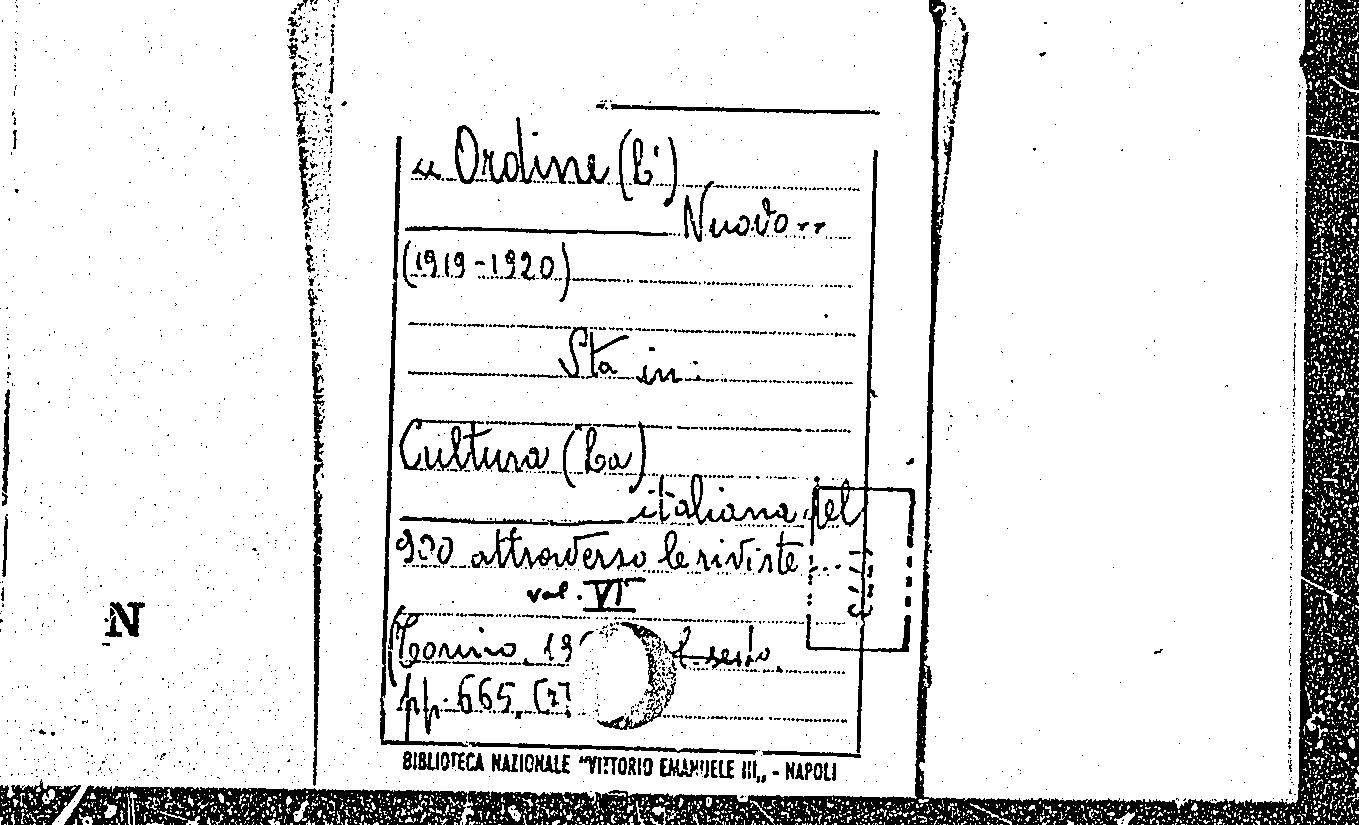 « Ordine (L')
Nuovo »
(1919-1920)
Sta in:
Cultura (La)
italiana del
900 attraverso le riviste
vol. VI
(Torino, 19
pp. 665, [7]
BIBLIOTECA NAZIONALE "VITTORIO EMANUELE III„ - NAPOLI
N